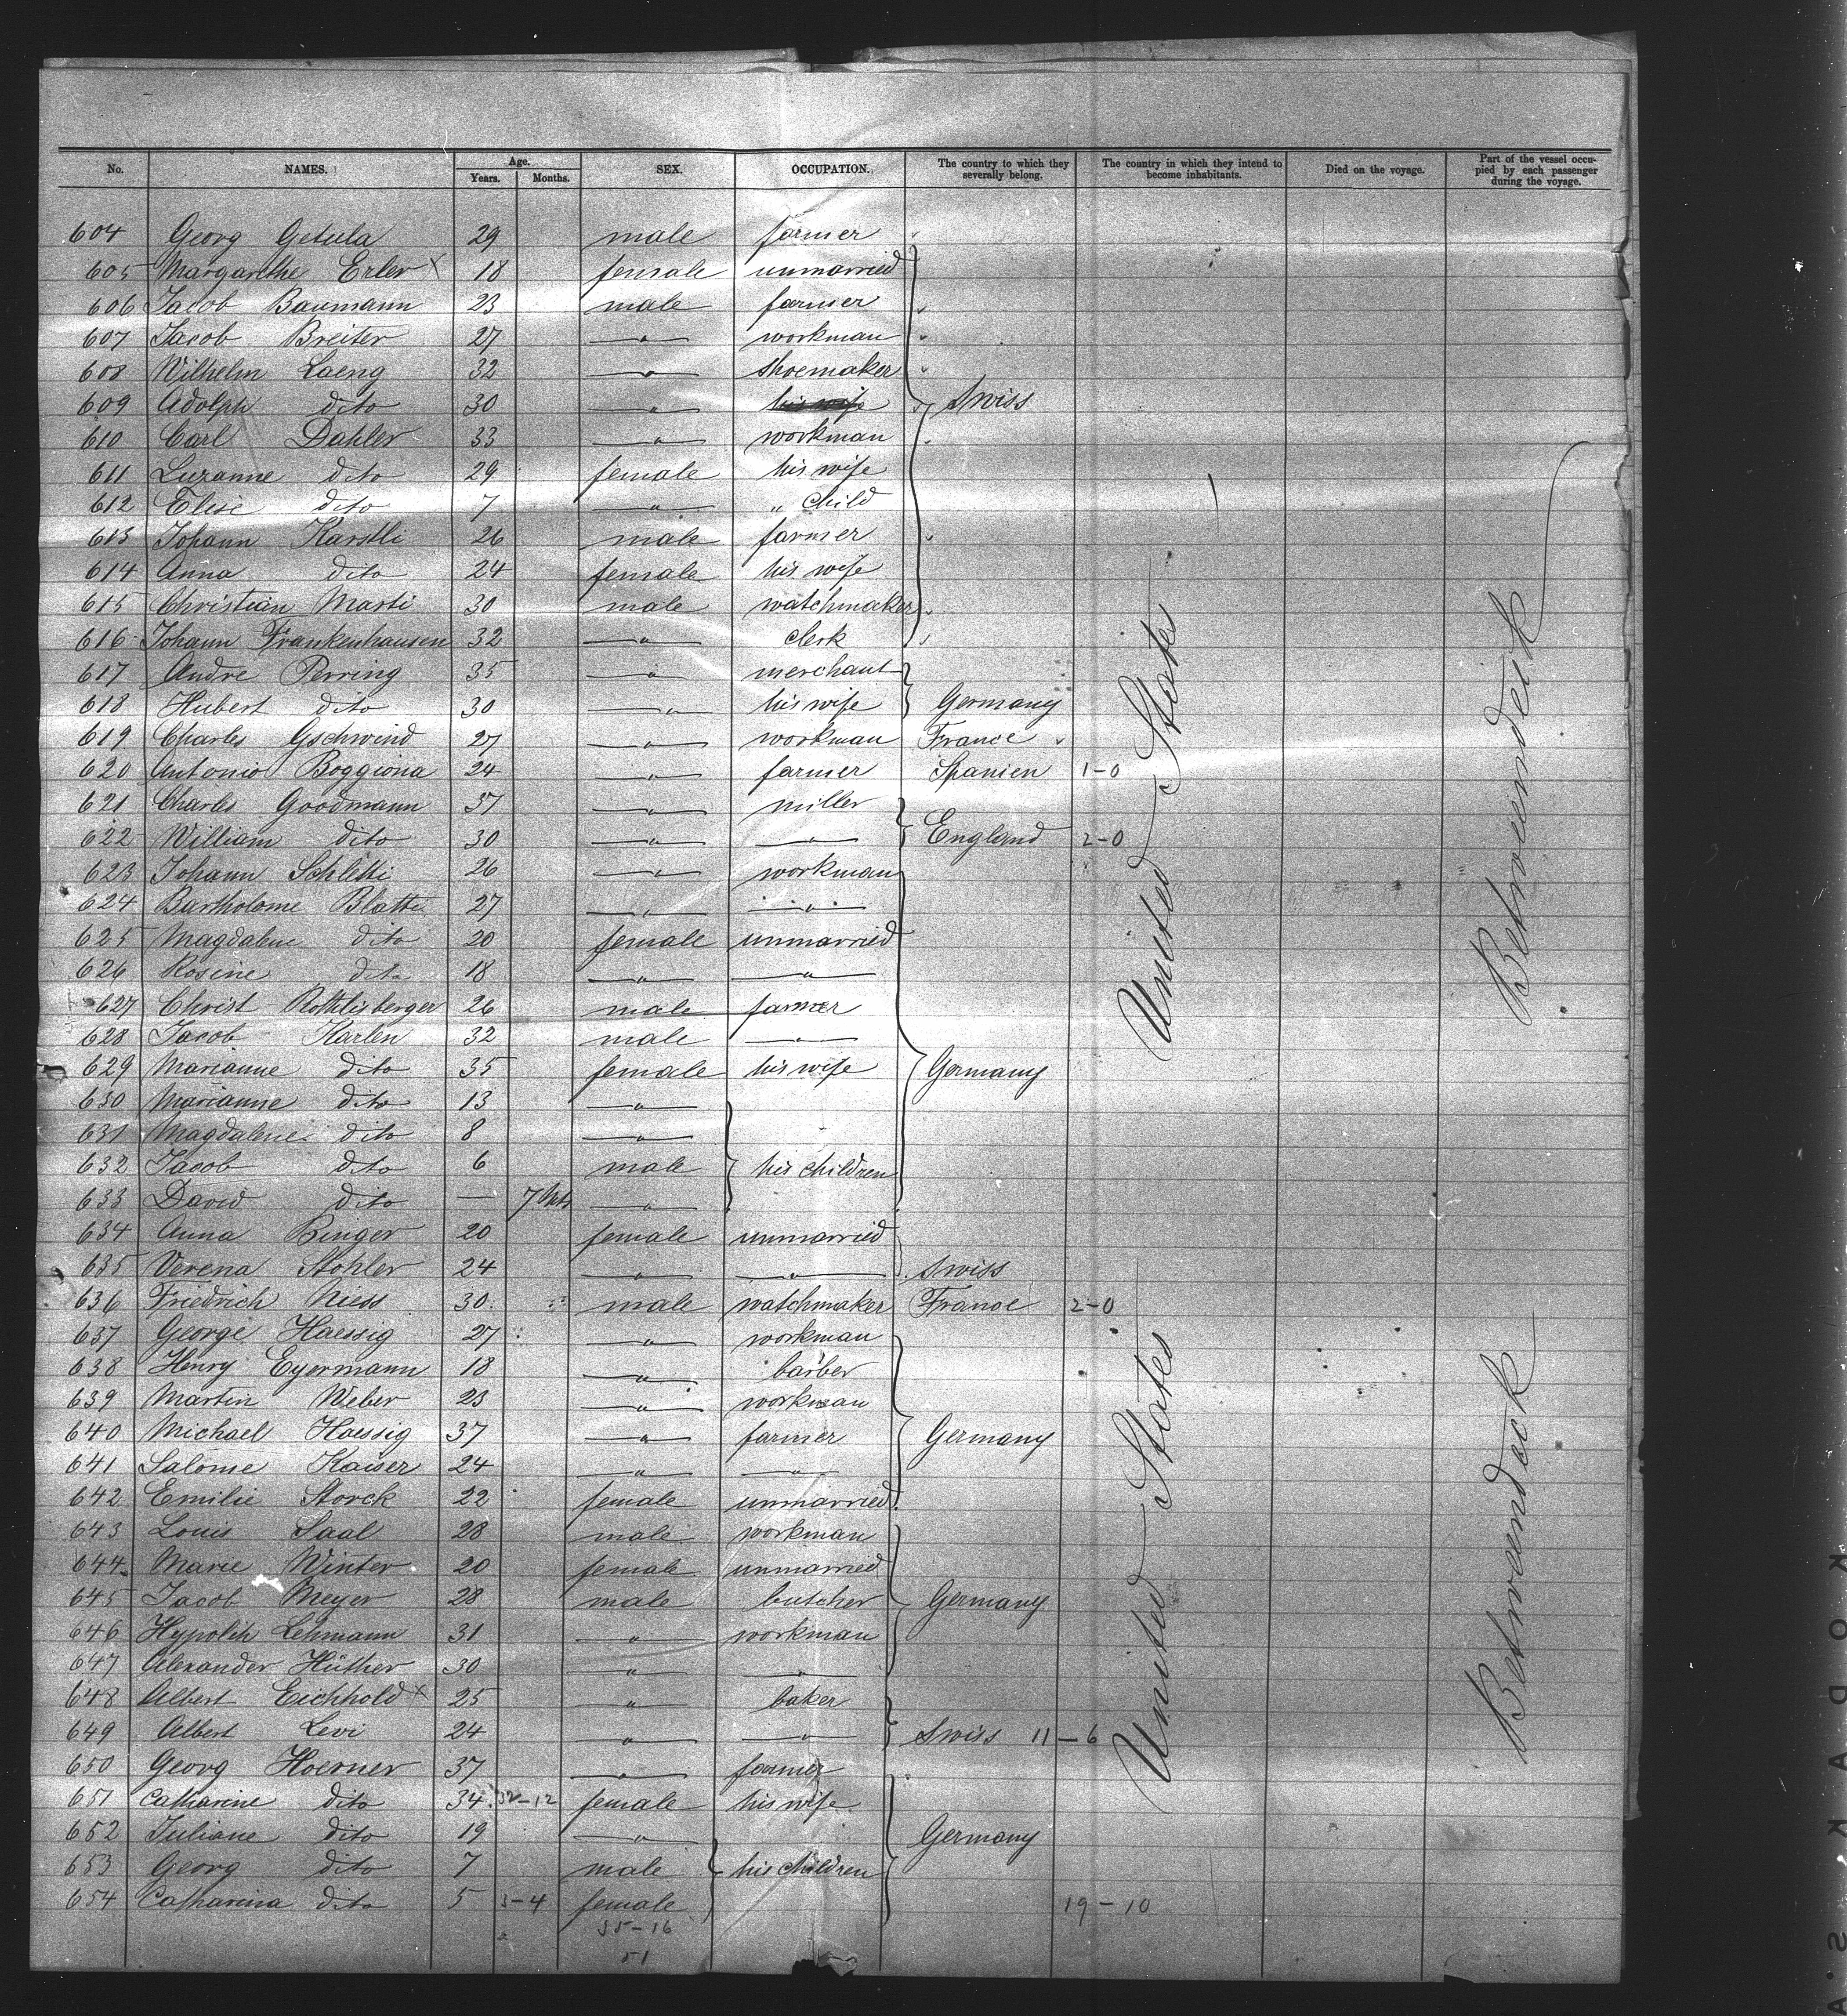 No. NAMES. Age. Years. Months. SEX. OCCUPATION. The country to which they severally belong. The country in which they intend to become inhabitants. Died on the voyage. Part of the vessel occupied by each passenger during the voyage.
604 Georg Getula 29 male farmer
605 Margarethe Erler x 18 female unmarried
606 Jacob Baumann 23 male farmer
607 Jacob Breiter 27 " workman
608 Wilhelm Laeng 32 " shoemaker
609 Adolph dito 30 " his wife Swiss
610 Carl Dahler 33 " workman
611 Luzanne dito 29 female his wife
612 Elise dito 7 " " child
613 Johann Karstli 26 male farmer
614 Anna dito 24 female his wife
615 Christian Marti 30 male watchmaker
616 Johann Frankenhausen 32 " clerk
617 Andre Perring 35 " merchant
618 Hubert dito 30 " his wife Germany
619 Charles Gschwind 27 " workman France
620 Antonio Boggiona 24 " farmer Spanien 1-0
621 Charles Goodmann 37 " miller
622 William dito 30 " " England 2-0
623 Johann Schletti 26 " workman
624 Bartholome Blatti 27 " "
625 Magdalene dito 20 female unmarried
626 Rosine dito 18 " "
627 Christ Rothlisberger 26 male farmer
628 Jacob Karlen 32 male "
629 Marianne dito 35 female his wife Germany
630 Marianne dito 13 "
631 Magdalene dito 8 "
632 Jacob dito 6 male his children
633 David dito — 7 Mts "
634 Anna Binger 20 female unmarried
635 Verena Stohler 24 " " Swiss
636 Friedrich Niess 30 male watchmaker France 2-0
637 George Haessig 27 " workman
638 Henry Eyermann 18 " barber
639 Martin Weber 23 " workman
640 Michael Haessig 37 " farmer Germany
641 Salome Kaiser 24 " "
642 Emilie Storck 22 female unmarried
643 Louis Saal 28 male workman
644 Marie Winter 20 female unmarried
645 Jacob Meyer 28 male butcher Germany
646 Hypolith Lehmann 31 " workman
647 Alexander Hüther 30 " "
648 Albert Eichhold x 25 " baker
649 Albert Levi 24 " " Swiss 11-6
650 Georg Hoerner 37 " farmer
651 Catharine dito 34 32-12 female his wife
652 Juliane dito 19 " Germany
653 Georg dito 7 male his children
654 Catharina dito 5 3-4 female 19-10
35-16
51
United States
Betweendeck
United States
Betweendeck
KODAK